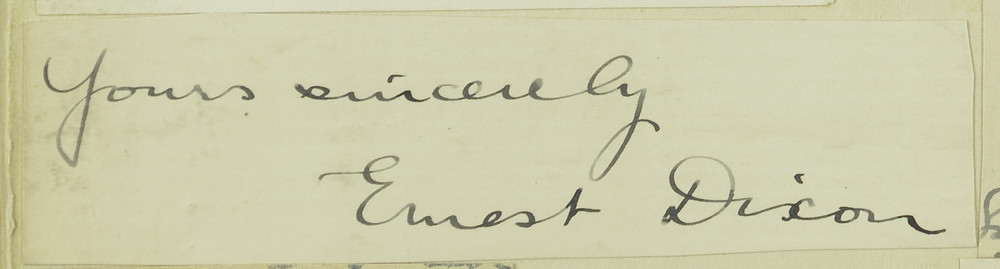 Yours sincerely
Ernest Dixon